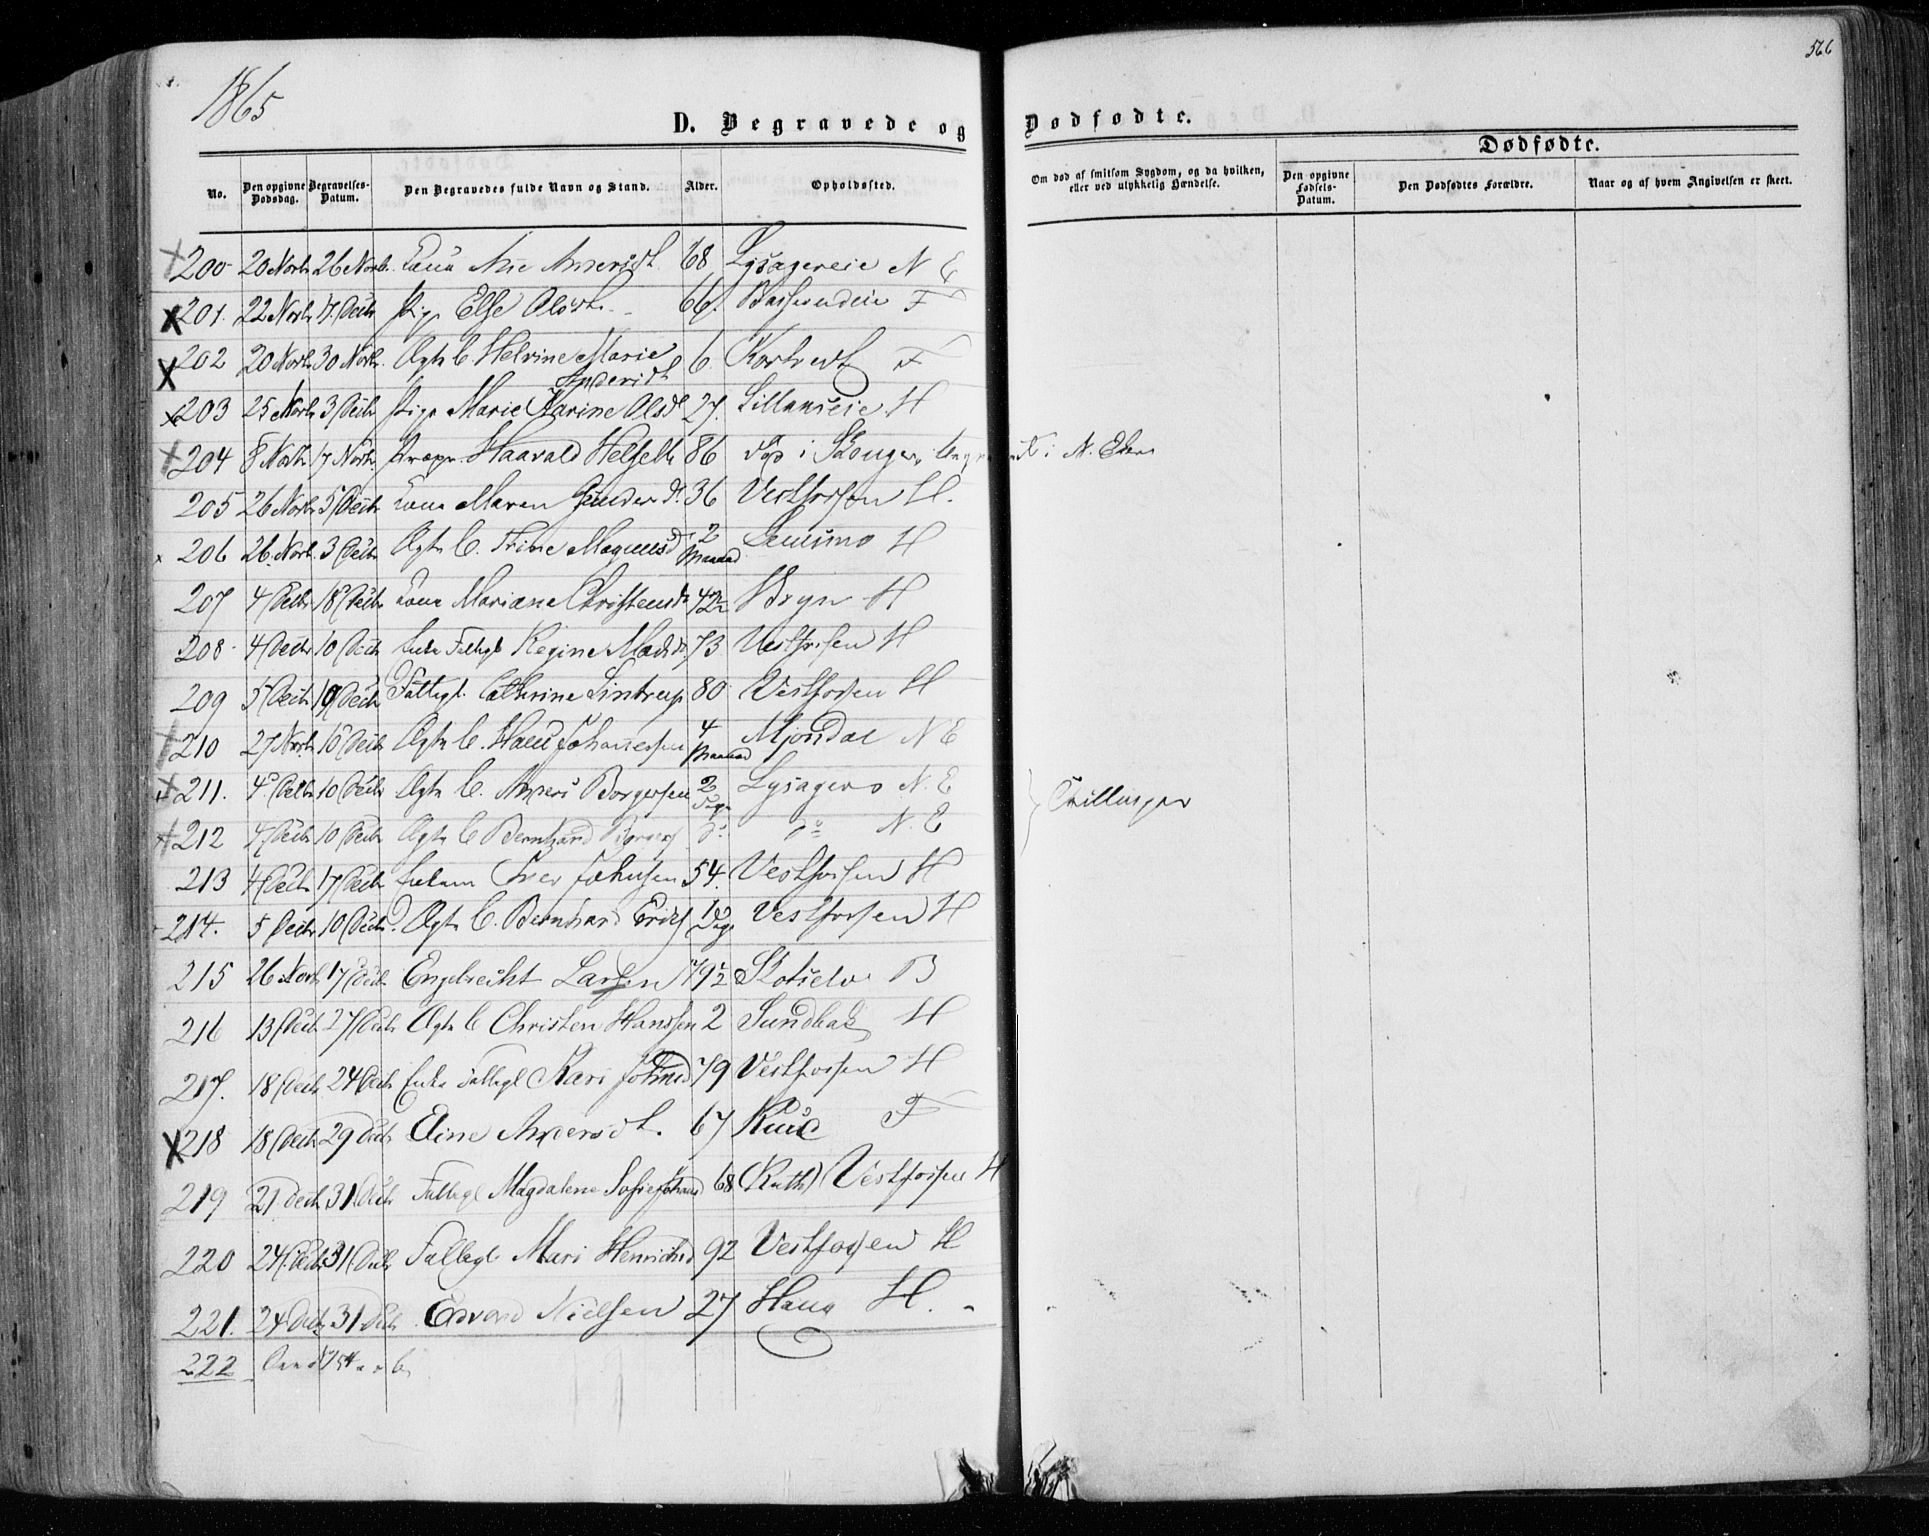 566
1865
D. Begravede og Dødfødte.
Dødfødte.
No. Den opgivne Dødsdag. Begravelses-Datum. Den Begravedes fulde Navn og Stand. Alder. Opholdssted. Om død af smitsom Sygdom, og da hvilken, eller ved ulykkelig Hændelse. Den opgivne Fødsels-Datum. Den Dødfødtes Forældre. Naar og af hvem Angivelsen er skeet.
200 20 Novbr 26 Novb. Kona Ane Andersdt. 68 Lysagereie N E
201. 22 Novbr 7. Decbr Pige Else Olsdt. 66. F
202 20 Novbr 30 Novbr. Ægte C. Helvine Marie Andersdt 6. F
203 25 Novbr 3 Decbr Pige Marie Karine Olsdt 27. H
204 8 Novbr 17 Novbr. Haavald Helgels 86 i N. Eker
205 26 Novbr 5 Decbr Kona Maren Gunder dt. 36 Vestfossen H.
206 26. Novb. 3 Decbr Ægte C. Trine Magnusd. 2 Maaned H
207 4 Decbr 18 Decbr Kona Mariane Christensdt 42 H
208 4 Decbr 10 Decbr Enke Fattigl Regine Madsdt. 73 Vestfossen H
209 5 Decbr 10 Decbr Fattigl. Cathrine Lintrup 80 Vestfossen H
210 27 Novbr. 10 Decbr Ægte C. Johannessen 4 Maaned Mjøndal N E
211. 4. Decbr 10 Decbr Ægte C. Anders Borgersen 2 Dage Lysagero N. E } Tvillinger
212 4 Decbr 10 Decbr Ægte C Bernhard Borgers do. do N. E
213 4 Decbr 17 Decbr Inderst Iver Johnsen 54. Vestfossen H
214. 5 Decbr 10 Decbr. Ægte C. Bernhard Erics 10 Dage Vestfossen H
215 26 Novbr 17 Decbr Engebrecht Larsen 79½ Skotselv B
216 13 Decbr 27 Decbr Ægte C Christen Hanssen 2 Sundbak H
217. 18 Decbr 24 Decbr Enke Fattigl Kari Johnsd 79 Vestfossen H
218 18 Decbr 29 Decbr Eline Andersdt. 67 F
219 21 Decbr 31. Decbr Fattigl Magdalene Sofie Johansd 68 (Ruth) Vestfossen H
220 24. Decbr 31 Decbr Fattigl Mari Henrichsd 92 Vestfossen H
221. 24 Decbr 31 Decbr Edvard Nielsen 27 Haug H.
222